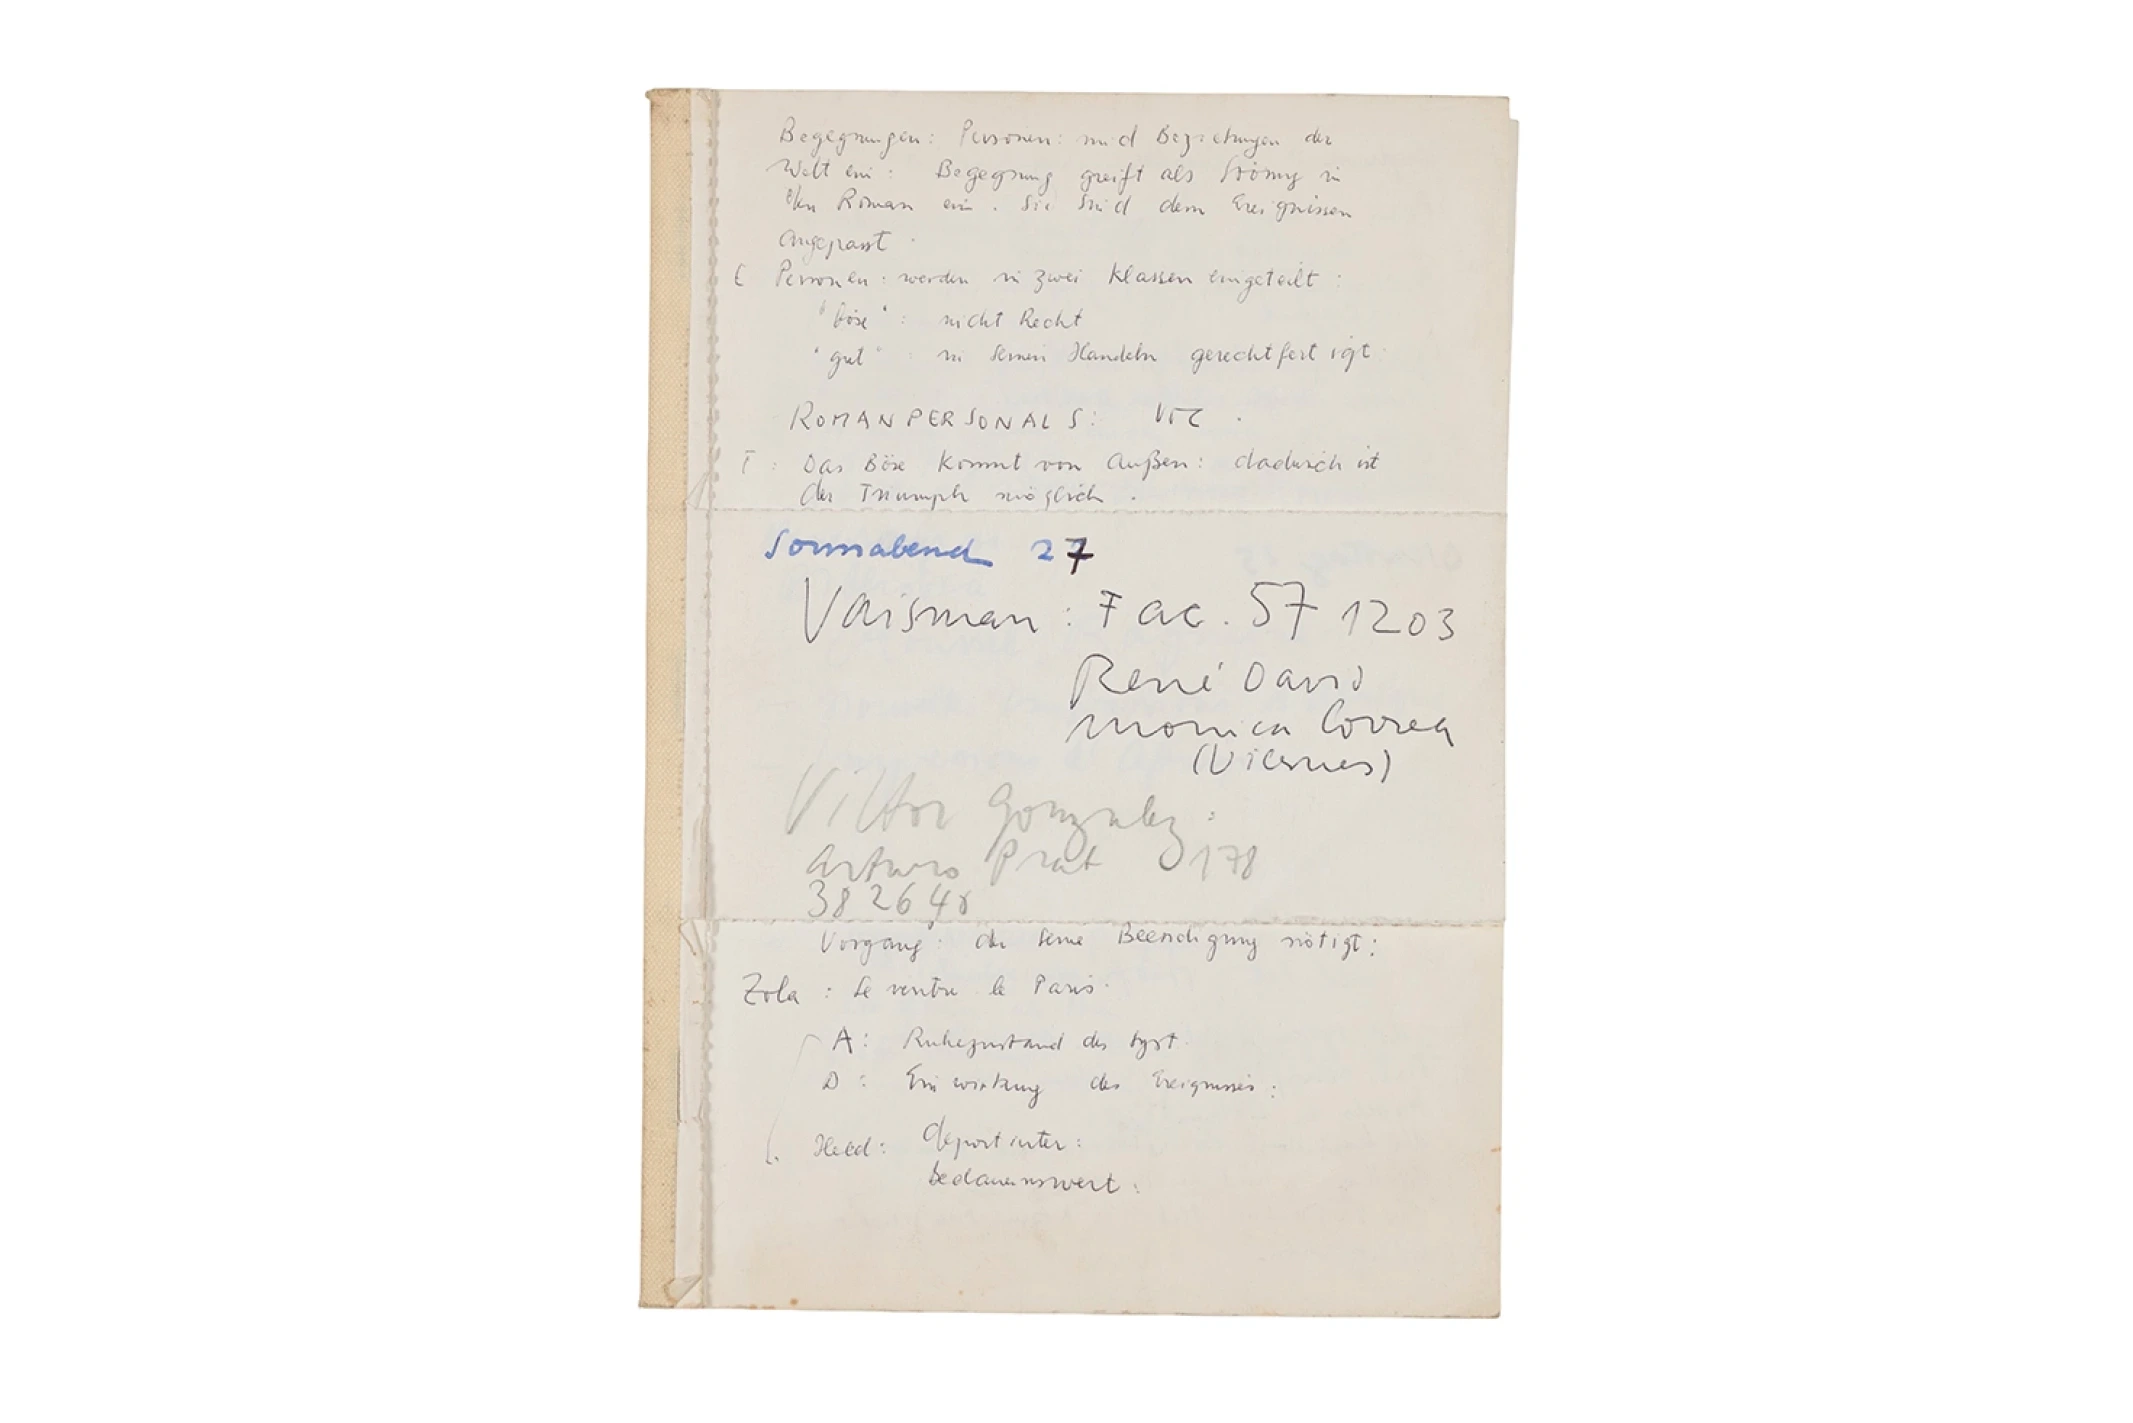 Begegnungen: Personen: und Beziehungen der
Welt ein: Begegnung greift als Störung in
den Roman ein. Sie sind dem Ereignissen
angepasst.
E Personen: werden in zwei Klassen eingeteilt:
"böse": nicht Recht
"gut": in seinem Handeln gerechtfertigt
ROMANPERSONALS:
T: Das Böse kommt von Außen: dadurch ist
der Triumph möglich.
Sonnabend 27
Vaisman: Fac. 57 1203
René David
Monica Correa
(Viernes)
Viktor Gonzalez:
Arturo Prat 178
382648
Vorgang: der seine Beendigung nötigt:
Zola: Le ventre de Paris.
A: Ruhezustand des Syst.
D: Einwirkung des Ereignisses:
Held:
bedauernswert: